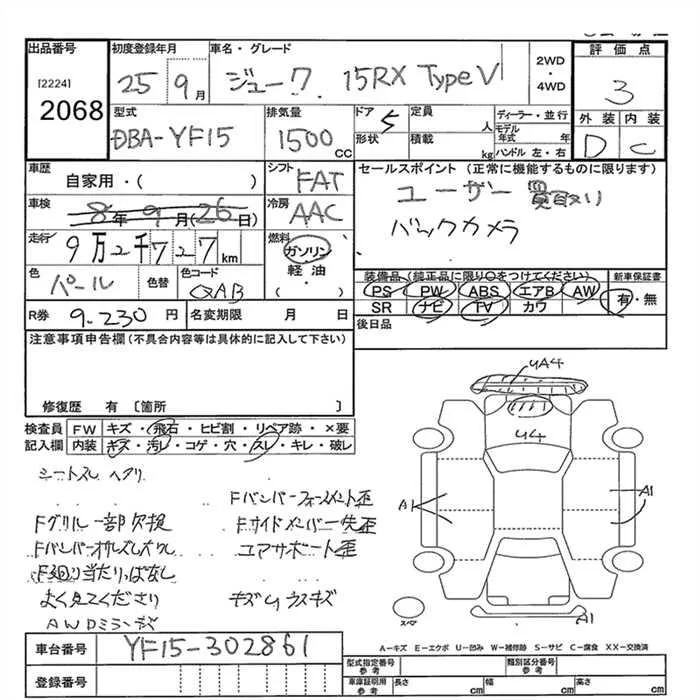 出品番号
[2224]
2068
初度登録年月
25 9月
車名・グレード
ジューク 15RX TypeV
2WD
・
4WD
評価点
3
型式
DBA-YF15
排気量
1500 CC
ドア 5
形状
定員 人
積載 kg
ディーラー・並行
モデル年式 年
ハンドル 左・右
外装 内装
D C
車歴
自家用・( )
シフト FAT
セールスポイント (正常に機能するものに限ります)
ユーザー買取り
バックカメラ
車検
8年9月(26日)
冷房 AAC
走行
9万2千727km
燃料
ガソリン
軽油
( )
色
パール
色替
色コード
QAB
装備品(純正品に限り○をつけてください)
PS PW ABS エアB AW
SR ナビ TV カワ
新車保証書
有・無
R券 9.230 円
名変期限 月 日
後日品
注意事項申告欄(不具合内容等は具体的に記入して下さい)
修復歴 有 [箇所 ]
検査員記入欄
FW キズ・飛石・ヒビ割・リペア跡・×要
内装 キズ・汚レ・コゲ・穴・スレ・キレ・破レ
シートスレ ヘタリ
Fバンパーフォースメント歪
Fグリル一部欠損
Fサイドメンバー先歪
コアサポート歪
F廻り当たりっぱなし
よく見てください
UA4
U4
A1
A1
A1
スペア
車台番号 YF15-302861
登録番号
A-キズ E-エクボ U-凹み W-補修跡 S-サビ C-腐食 XX-交換済
型式指定番号
参考
類別区分番号
参考
車庫証明用
参考
長さ cm
幅 cm
高さ cm